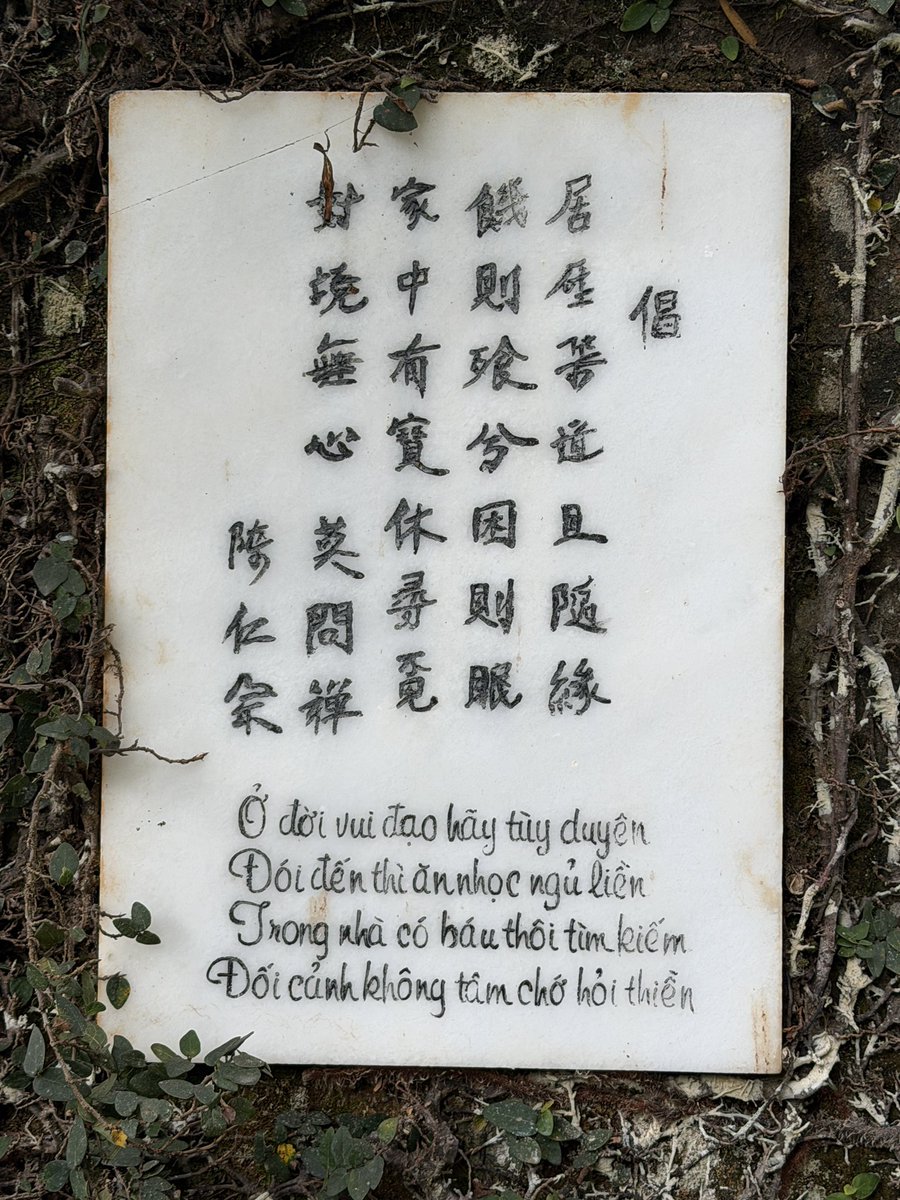 倡
居塵楽道且隨緣
饑則飱兮困則眠
家中有寶休尋覓
對境無心英問禅
陳仁宗
Ở đời vui đạo hãy tùy duyên
Đói đến thì ăn nhọc ngủ liền
Trong nhà có báu thôi tìm kiếm
Đối cảnh không tâm chớ hỏi thiền